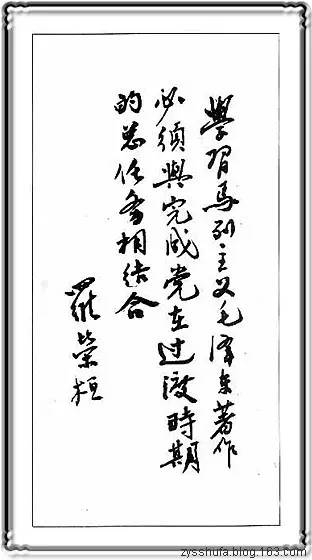 學習馬列主义毛澤东著作
必須與完成党在过渡時期
的总任务相结合
羅榮桓
zysshufa.blog.163.com